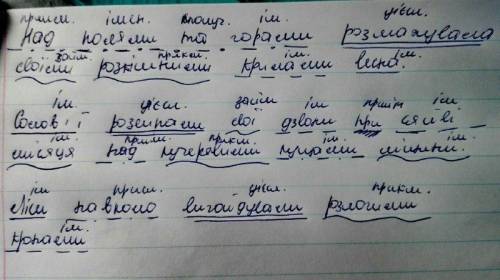 прийм. імен. сполуч. ім. дієсл.
Над полями та горами розмахувала
займ. прикм. ім. ім.
своїми розкішними крилами весна.
ім. дієсл. займ ім прийм ім.
Солов'ї розсипали свої дзвони при сяйві
ім. прийм. прикм. ім.
місяця над кучерявими пущами
ім прим. дієсл. прикм.
Ліси навколо вигойдували розлогими
ім.
кронами